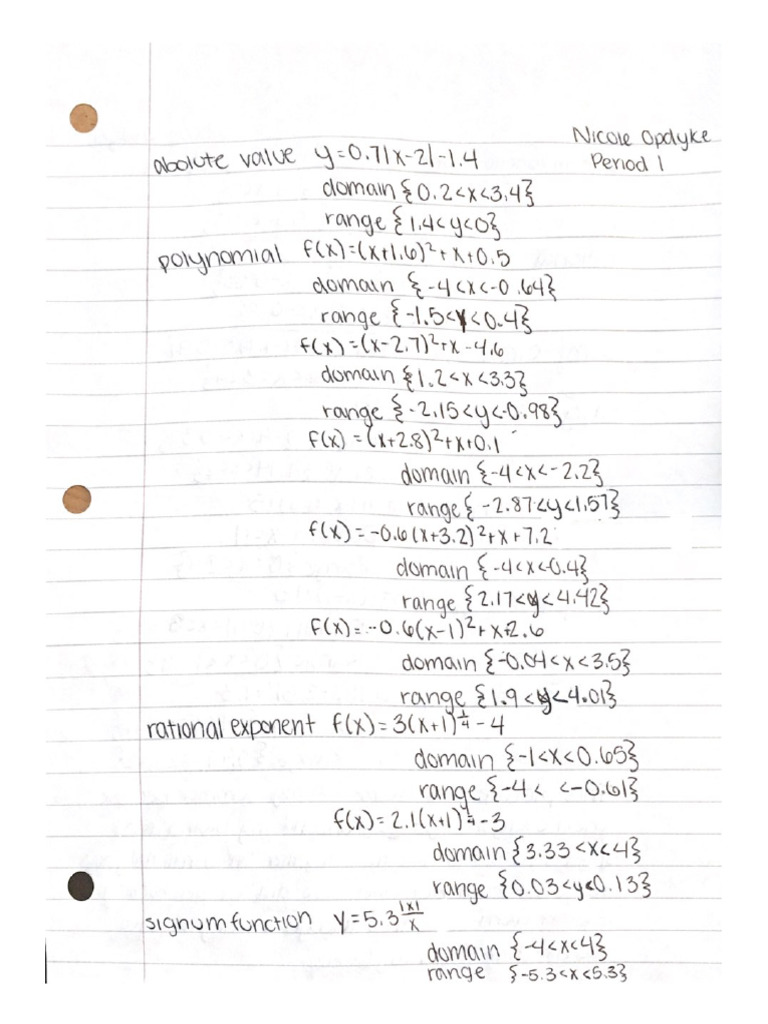 Nicole Opdyke
Period 1
abolute value y=0.7|x-2|-1.4
domain {0.2<x<3.4}
range {1.4<y<0}
polynomial f(x)=(x+1.6)²+x+0.5
domain {-4<x<-0.64}
range {-1.5<y<0.4}
f(x)=(x-2.7)²+x-4.6
domain {1.2<x<3.3}
range {-2.15<y<-0.98}
f(x)=(x+2.8)²+x+0.1
domain {-4<x<-2.2}
range {-2.87<y<1.57}
f(x)=-0.6(x+3.2)²+x+7.2
domain {-4<x<0.4}
range {2.17<y<4.42}
f(x)=-0.6(x-1)²+x+2.6
domain {-0.04<x<3.5}
range {1.9<y<4.01}
rational exponent f(x)=3(x+1)^1/4-4
domain {-1<x<0.65}
range {-4< <-0.61}
f(x)=2.1(x+1)^1/4-3
domain {3.33<x<4}
range {0.03<y<0.13}
signum function y=5.3 |x|/x
domain {-4<x<4}
range {-5.3<x<5.3}